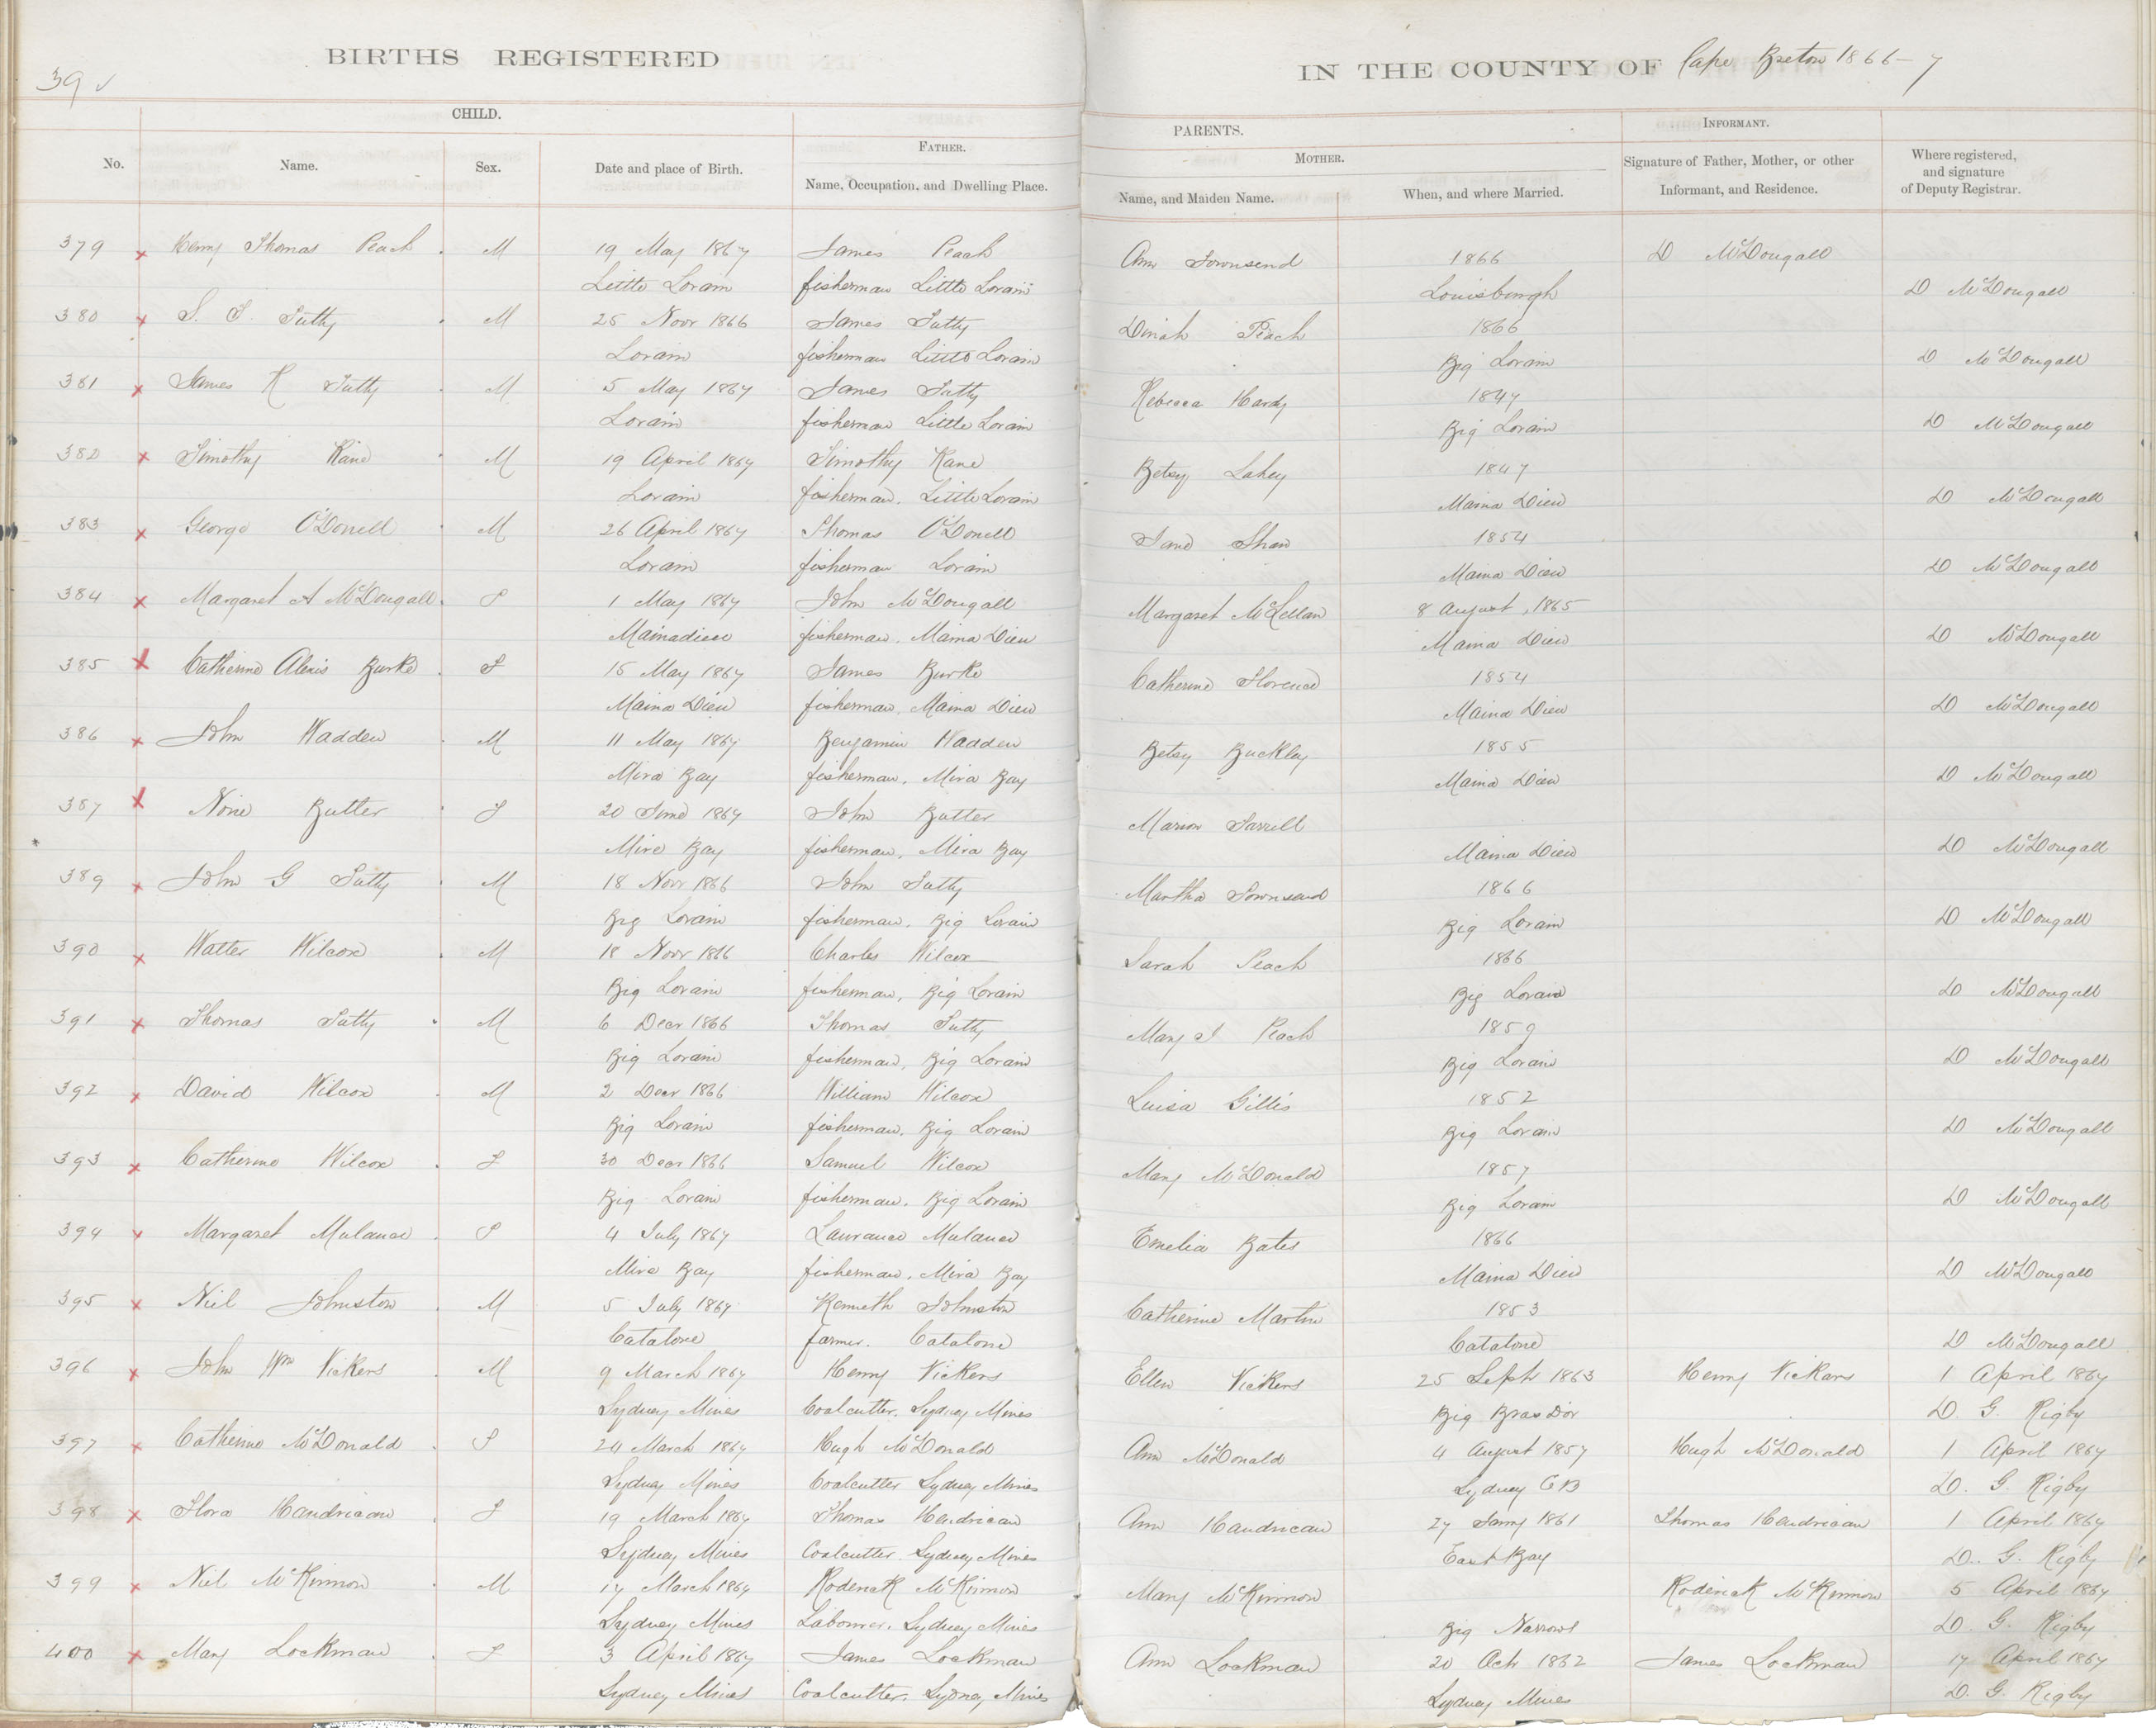 39
BIRTHS REGISTERED
IN THE COUNTY OF Cape Breton 1866-7
CHILD.
PARENTS.
INFORMANT.
No.
Name.
Sex.
Date and place of Birth.
FATHER.
Name, Occupation, and Dwelling Place.
MOTHER.
Name, and Maiden Name.
When, and where Married.
Signature of Father, Mother, or other
Informant, and Residence.
Where registered,
and signature
of Deputy Registrar.
379 x Henry Thomas Peach M 19 May 1867 James Peach Ann Townsend 1866 D McDougall
Little Lorain fisherman Little Lorain Louisburgh D McDougall
380 x S. T. Tutty M 25 Novr 1866 James Tutty Dinah Peach 1866
Lorain fisherman Little Lorain Big Lorain D McDougall
381 x James R Tutty M 5 May 1867 James Tutty Rebecca Hardy 1847
Lorain fisherman Little Lorain Big Lorain D McDougall
382 x Timothy Kane M 19 April 1867 Timothy Kane Betsy Lahey 1847
Lorain fisherman. Little Lorain Maina Dieu D McDougall
383 x George O'Donell M 26 April 1867 Thomas O'Donell Jane Shaw 1854
Lorain fisherman Lorain Maina Dieu D McDougall
384 x Margaret A McDougall F 1 May 1867 John McDougall Margaret McLellan 8 August, 1865
Mainadieu fisherman. Maina Dieu Maina Dieu D McDougall
385 x Catherine Alexis Burke F 15 May 1867 James Burke Catherine Florence 1854
Maina Dieu fisherman, Maina Dieu Maina Dieu D McDougall
386 x John Wadden M 11 May 1867 Benjamin Wadden Betsy Buckley 1855
Mira Bay fisherman, Mira Bay Maina Dieu D McDougall
387 x None Butter F 20 June 1867 John Butter Marion
Mira Bay fisherman, Mira Bay Maina Dieu D McDougall
389 x John G Tutty M 18 Novr 1866 John Tutty Martha Townsend 1866
Big Lorain fisherman, Big Lorain Big Lorain D McDougall
390 x Walter Wilcox M 18 Novr 1866 Charles Wilcox Sarah Peach 1866
Big Lorain fisherman, Big Lorain Big Lorain D McDougall
391 x Thomas Tutty M 6 Decr 1866 Thomas Tutty Mary J Peach 1859
Big Lorain fisherman, Big Lorain Big Lorain D McDougall
392 x David Wilcox M 2 Decr 1866 William Wilcox Luisa Gillis 1852
Big Lorain fisherman. Big Lorain Big Lorain D McDougall
393 x Catherine Wilcox F 30 Decr 1866 Samuel Wilcox Mary McDonald 1857
Big Lorain fisherman. Big Lorain Big Lorain D McDougall
394 x Margaret Mulance F 4 July 1867 Laurance Mulance Emelia Bates 1866
Mira Bay fisherman. Mira Bay Maina Dieu D McDougall
395 x Niel Johnston M 5 July 1867 Kenneth Johnston Catherine Martin 1853
Catalone farmer. Catalone Catalone D McDougall
396 x John Wm Vickers M 9 March 1867 Henry Vickers Ellen Vickers 25 Sept 1863 Henry Vickars 1 April 1867
Sydney Mines Coalcutter. Sydney Mines Big Bras Dor D. G. Rigby
397 x Catherine McDonald F 24 March 1867 Hugh McDonald Ann McDonald 4 August 1857 Hugh McDonald 1 April 1867
Sydney Mines Coalcutter Sydney Mines Sydney CB D. G. Rigby
398 x Flora Handrican F 19 March 1867 Thomas Hendrican Ann Handrican 27 Jany 1861 Thomas Hendrican 1 April 1867
Sydney Mines Coalcutter. Sydney Mines East Bay D. G. Rigby
399 x Niel McKinnon M 17 March 1867 Roderick McKinnon Mary McKinnon Roderick McKinnon 5 April 1867
Sydney Mines Labourer. Sydney Mines Big Narrows D. G. Rigby
400 x Mary Lockman F 3 April 1867 James Lockman Ann Lockman 20 Octr 1862 James Lockman 17 April 1867
Sydney Mines Coalcutter. Sydney Mines Sydney Mines D. G. Rigby